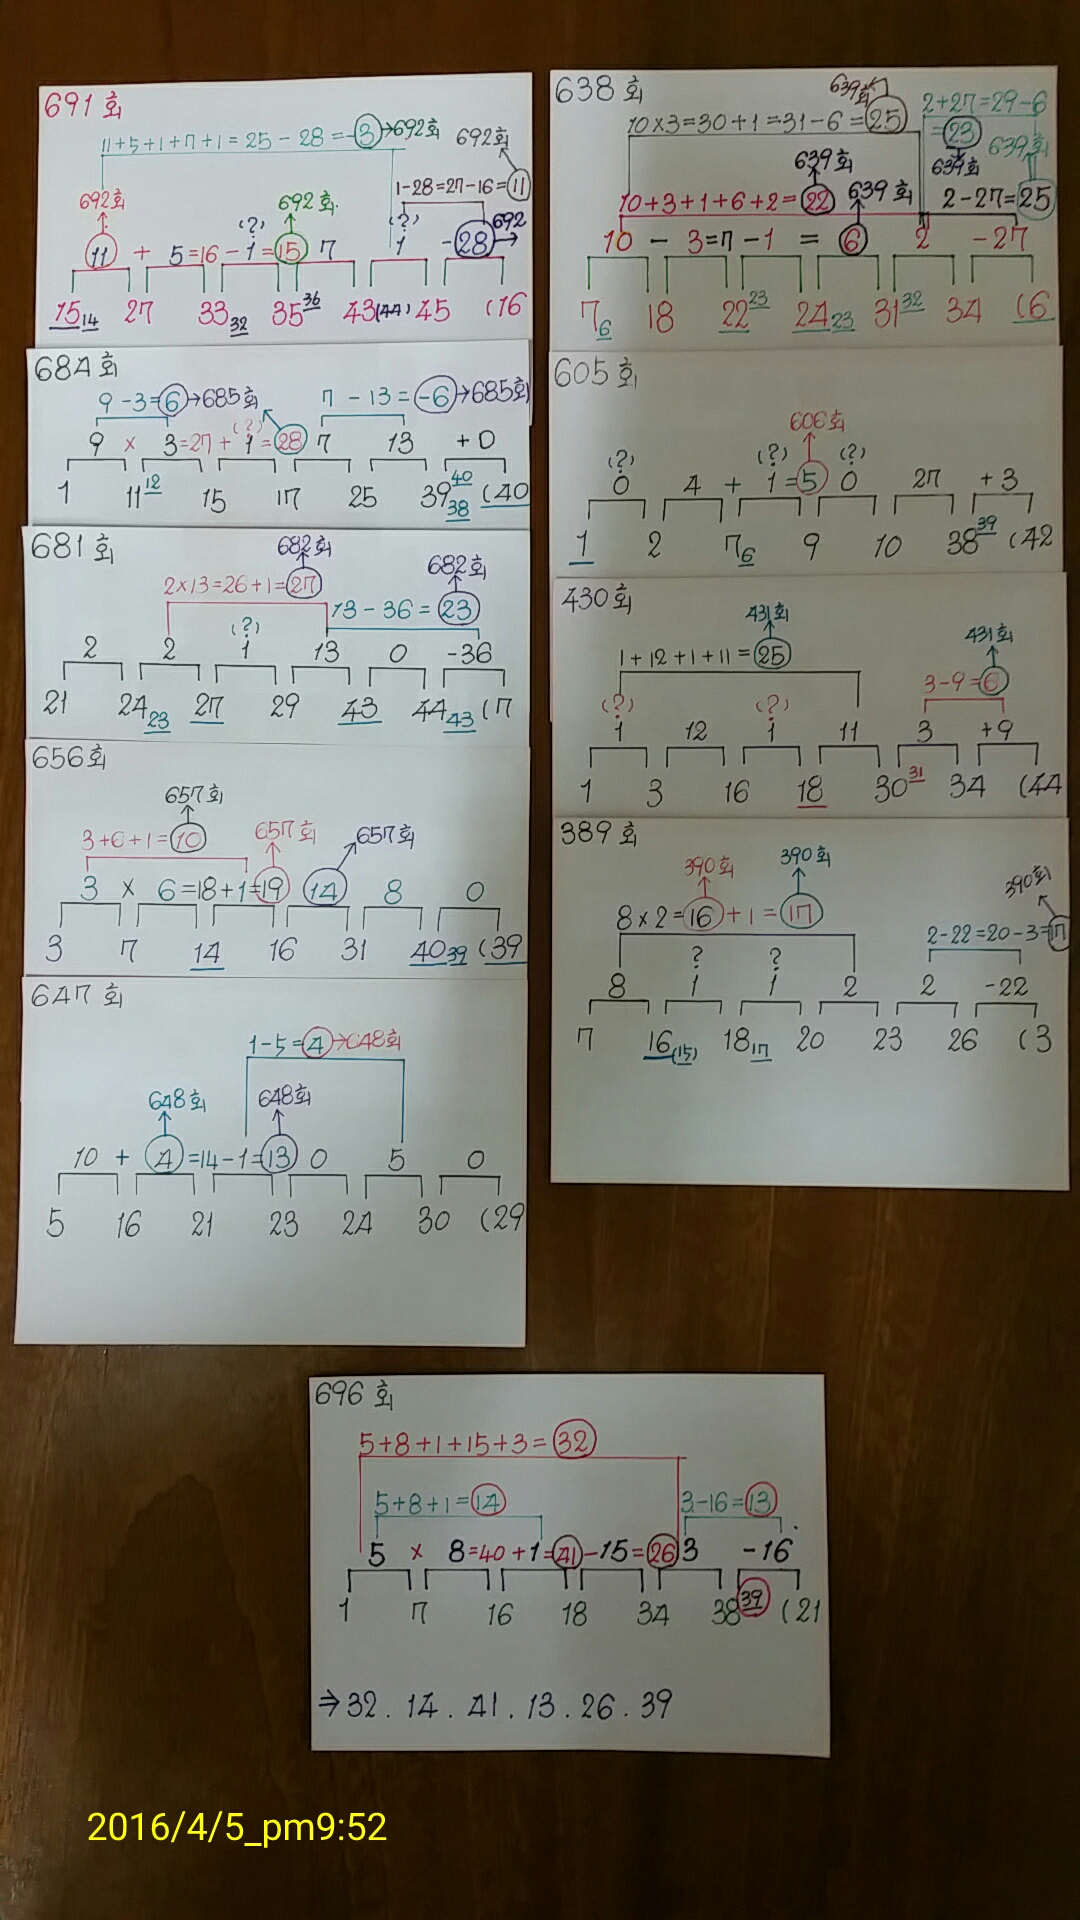 691회
11+5+1+7+1=25-28=-3→692회
692회
1-28=27-16=11
692회
692회
(?)
(?)
692→
11 + 5=16-1=15 7 1 -28
15 14 27 33 32 35 36 43(44) 45 (16
684회
9-3=6→685회
7-13=-6→685회
(?)
9 x 3=27+1=28 7 13 +0
1 11 12 15 17 25 39 40 38 (40
681회
682회
2x13=26+1=27
682회
13-36=23
(?)
2 2 1 13 0 -36
21 24 23 27 29 43 44 43 (7
656회
657회
3+6+1=10
657회
657회
3 x 6=18+1=19 14 8 0
3 7 14 16 31 40 39 (39
647회
1-5=4→648회
648회
648회
10 + 4=14-1=13 0 5 0
5 16 21 23 24 30 (29
638회
639회
10x3=30+1=31-6=25
2+27=29-6
=23
639회
639회
639회
10+3+1+6+2=22
639회
2-27=25
10 - 3=7-1 = 6 2 -27
7 6 18 22 23 24 23 31 32 34 (6
605회
606회
(?)
(?)
(?)
0 4 + 1=5 0 27 +3
1 2 7 6 9 10 38 39 (42
430회
431회
1+12+1+11=25
431회
3-9=6
(?)
(?)
1 12 1 11 3 +9
1 3 16 18 30 31 34 (44
389회
390회
390회
390회
8x2=16+1=17
2-22=20-3=17
?
?
8 1 1 2 2 -22
7 16(15) 18 17 20 23 26 (3
696회
5+8+1+15+3=32
5+8+1=14
3-16=13
5 x 8=40+1=41-15=26 3 -16
1 7 16 18 34 38 39 (21
⇒32.14.41.13.26.39
2016/4/5_pm9:52